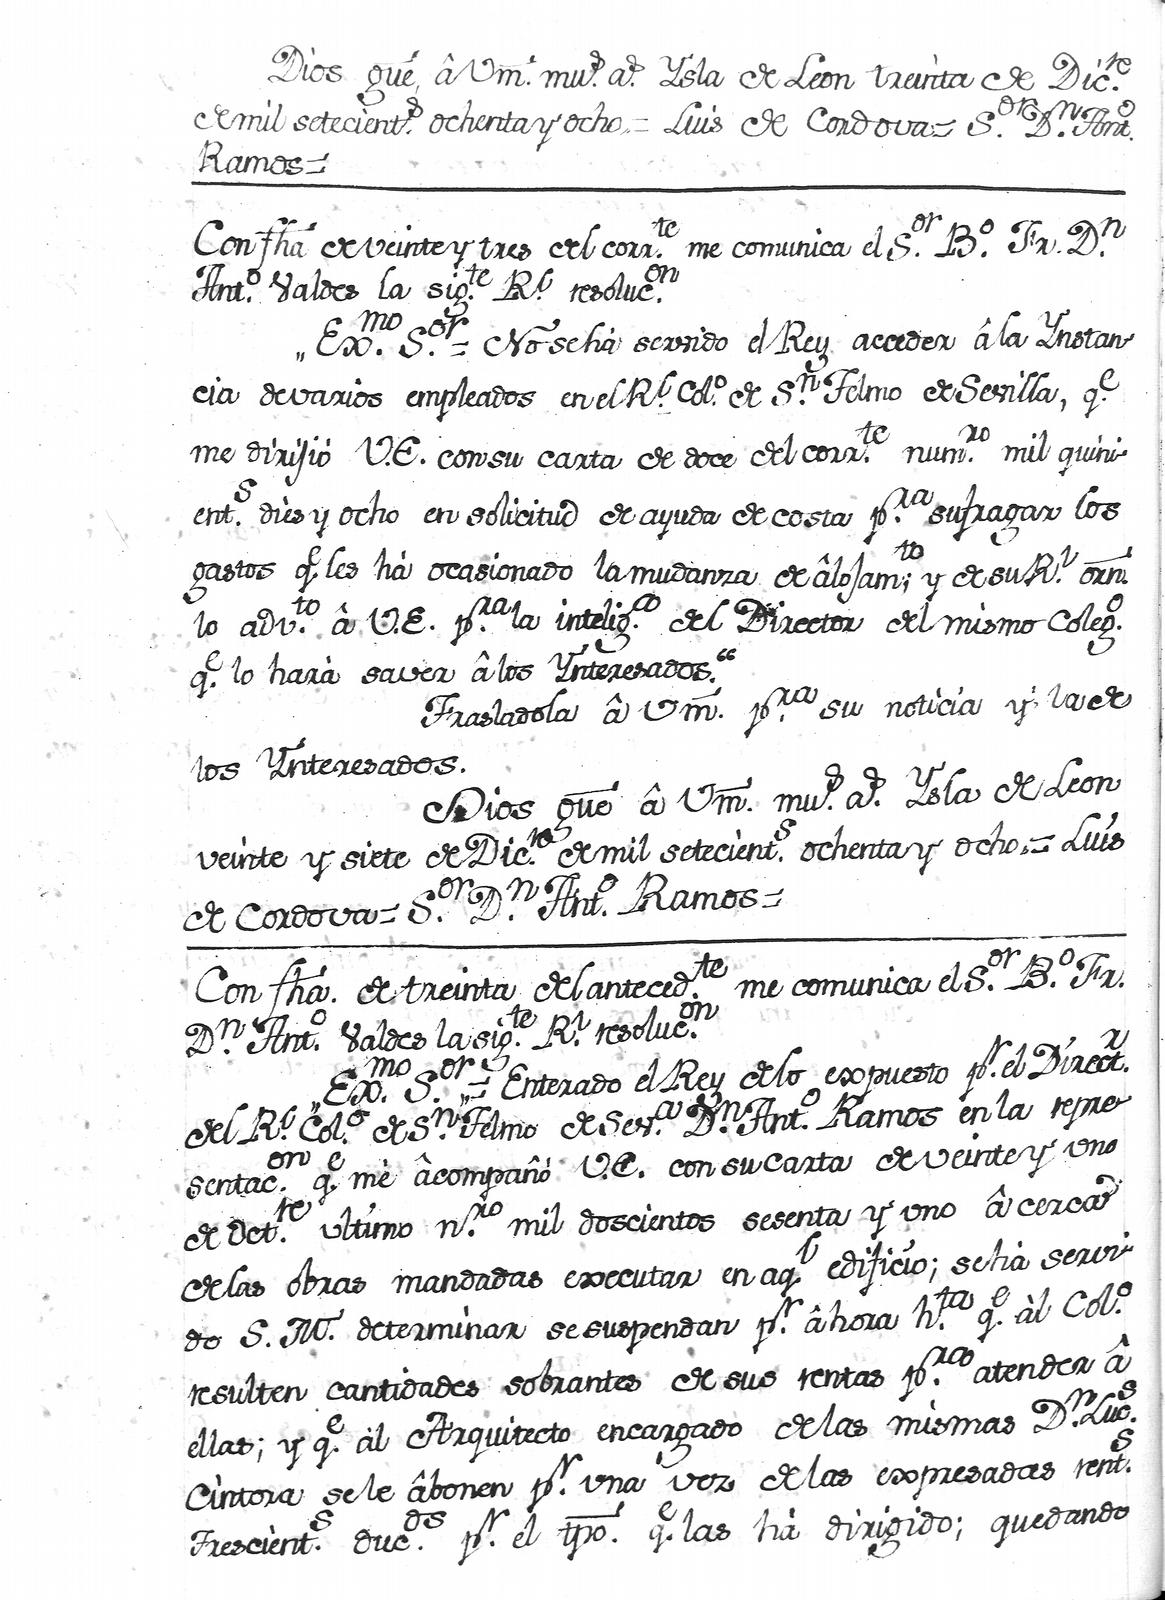 Dios gūe, â Vm̄. mu.s a.s Ysla de Leon treinta de Dic.re
de mil setecient.s ochenta y ocho,= Luis de Cordova= S.or D.n Ant.o
Ramos=
Con fha de veinte y tres del corr.te me comunica el S.or B.o Fr. D.n
Ant.o Valdes la sig.te R.l resoluc.on
„Ex.mo S.or= No se há servido el Rey acceder â la Ynstan-
cia de varios empleados en el R.l Col.o de S.n Telmo de Sevilla, q.e
me dirijió V.E. con su carta de doce del corr.te num.ro mil quini-
ent.s dies y ocho en solicitud de ayuda de costa p.ra sufragar los
gastos q.e les há ocasionado la mudanza de âlojam.to; y de su R.l orn̄.
lo adv.to â V.E. p.ra la intelig.a del Director del mismo Coleg.o
q.e lo hará saver â los Ynteresados."
Trasladola â Vm̄. p.ra su noticia y la de
los Ynteresados.
Dios gūe â Vm̄. mu.s a.s Ysla de Leon
veinte y siete de Dic.re de mil setecient.s ochenta y ocho,= Luis
de Cordova= S.or D.n Ant.o Ramos=
Con fhá. de treinta del anteced.te me comunica el S.or B.o Fr.
D.n Ant.o Valdes la sig.te R.l resoluc.on
„Ex.mo S.or„= Enterado el Rey de lo expuesto p.r el Direct.r
del R.l Col.o de S.n Telmo de Sev.a D.n Ant.o Ramos en la repre-
sentac.on q.e me âcompañó V.E. con su carta de veinte y uno
de Oct.re ultimo n.ro mil doscientos sesenta y uno â cerca
de las obras mandadas executar en aq.l edificio; se há servi-
do S.M. determinar se suspendan p.r âhora h.ta q.e âl Col.o
resulten cantidades sobrantes de sus rentas p.ra atender â
ellas; y q.e âl Arquitecto encargado de las mismas D.n Luc.s
Cintora se le âbonen p.r una vez de las expresadas rent.s
Trescient.s duc.ds p.r el tp̄o. q.e las há dirigido; quedando